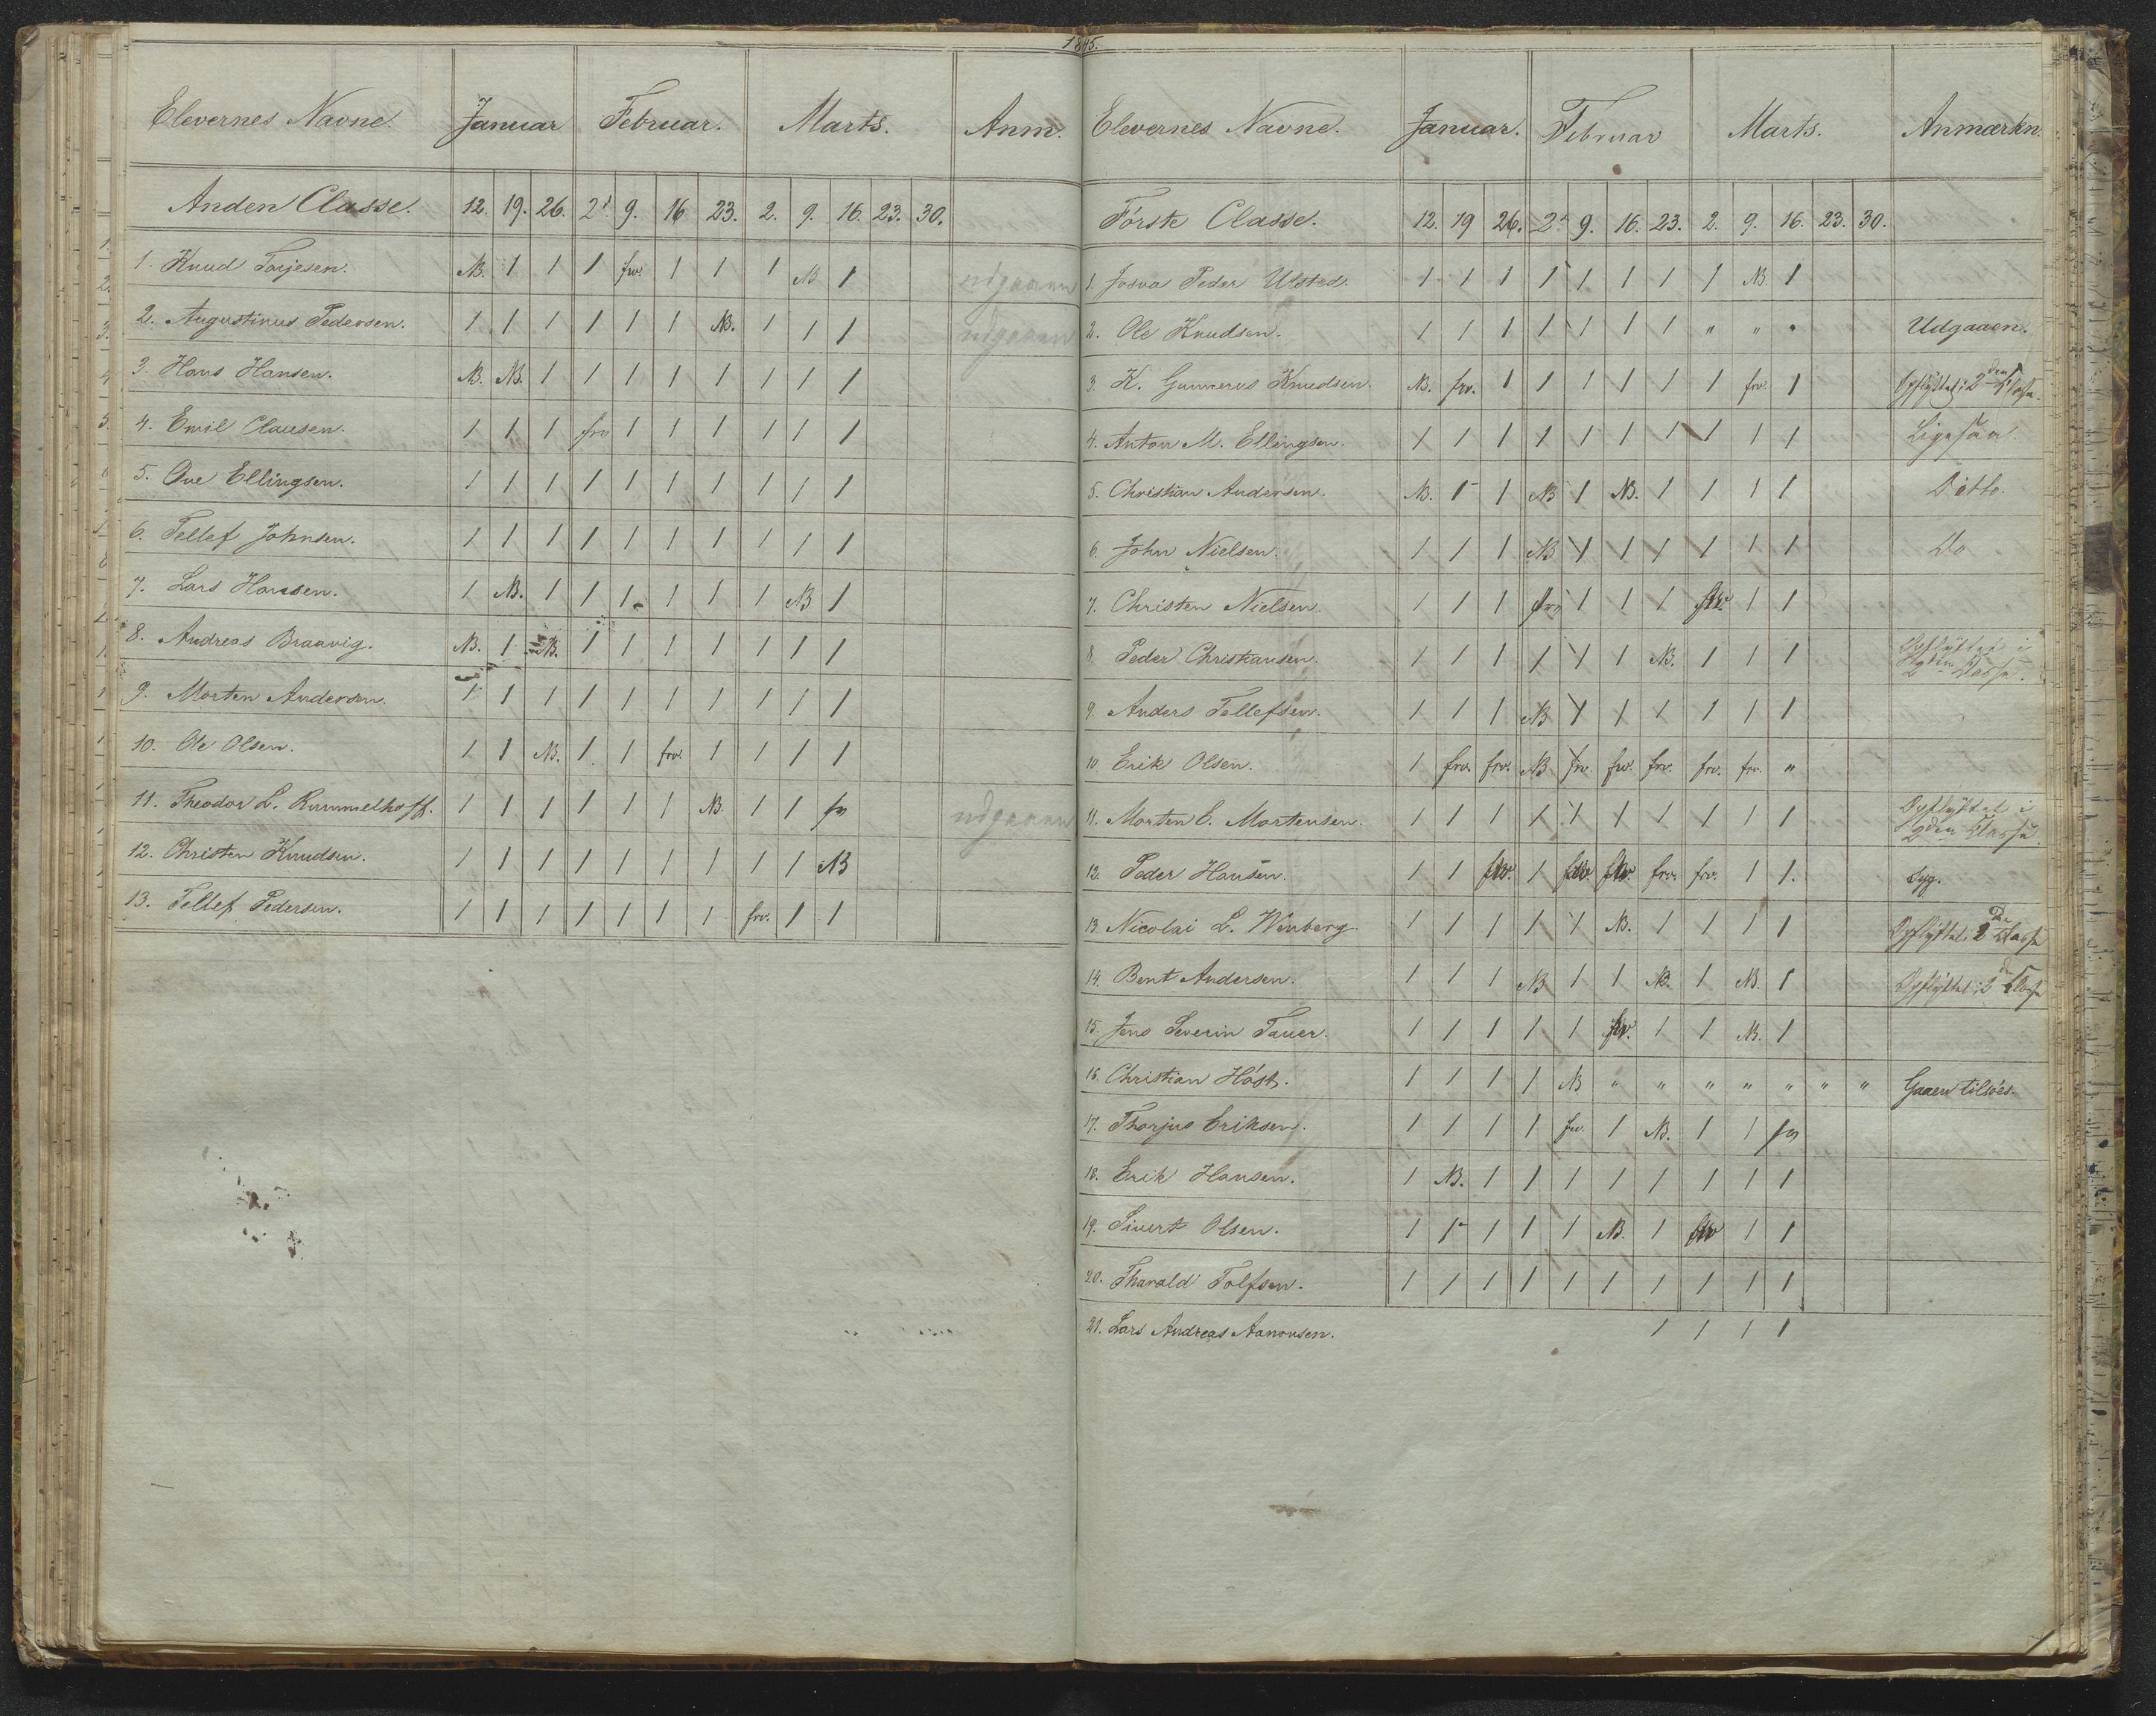 1845.
Elevernes Navne. Januar Februar. Marts. Anm.
Anden Classe. 12. 19. 26. 2. 9. 16 23. 2. 9. 16. 23. 30.
1. Knud Torjesen. NB. 1 1 1 frv. 1 1 1 NB 1 udgaaen
2. Augustinus Pedersen. 1 1 1 1 1 1 NB. 1 1 1 udgaaen
3. Hans Hansen. NB. NB. 1 1 1 1 1 1 1 1
4. Emil Clausen. 1 1 1 frv 1 1 1 1 1 1
5. Ove Ellingsen. 1 1 1 1 1 1 1 1 1 1
6. Tellef Johnsen. 1 1 1 1 1 1 1 1 1 1
7. Lars Hansen. 1 NB. 1 1 1 1 1 1 NB 1
8. Andreas Braavig. NB. 1 NB. 1 1 1 1 1 1 1
9. Morten Andersen. 1 1 1 1 1 1 1 1 1 1
10. Ole Olsen. 1 1 NB. 1 1 frv. 1 1 1 1
11. Theodor L. Rummelhoff. 1 1 1 1 1 1 NB. 1 1 frv udgaaen
12. Christen Knudsen. 1 1 1 1 1 1 1 1 1 NB
13. Tellef Pedersen. 1 1 1 1 1 1 1 frv. 1 1
Elevernes Navne. Januar. Februar Marts. Anmærkn.
Förste Classe. 12. 19 26. 2. 9. 16. 23. 2. 9. 16. 23. 30.
1. Josva Peder Ulsted. 1 1 1 1 1 1 1 1 NB. 1
2. Ole Knudsen. 1 1 1 1 1 1 1 " " " Udgaaen.
3. K. Gunnerus Knudsen. NB. frv. 1 1 1 1 1 1 frv. 1 Opflyttet i 2den Classe.
4. Anton M. Ellingsen. 1 1 1 1 1 1 1 1 1 1 Ligesaa.
5. Christian Andersen. NB. 1 1 NB 1 NB. 1 1 1 1 Ditto.
6. John Nielsen. 1 1 1 NB 1 1 1 1 1 1 Do
7. Christen Nielsen. 1 1 1 frv 1 1 1 frv 1 1
8 Peder Christiansen. 1 1 1 1 1 1 NB. 1 1 1 Opflyttet i 2den Classe.
9. Anders Tellefsen. 1 1 1 NB 1 1 1 1 1 1
10 Erik Olsen. 1 frv. frv. NB frv. frv. frv. frv. frv. "
11. Morten E. Mortensen. 1 1 1 1 1 1 1 1 1 1 Opflyttet i 2den Classe
12. Peder Hansen. 1 1 frv. 1 frv frv. frv. frv. 1 1. Syg.
13. Nicolai L. Wenberg. 1 1 1 1 1 NB. 1 1 1 1 Opflyttet i 2den Classe
14. Bent Andersen. 1 1 1 NB 1 1 NB. 1 NB. 1 Opflyttet i 2den Classe
15. Jens Severin Tauer. 1 1 1 1 1 frv. 1 1 NB. 1
16. Christian Höst. 1 1 1 1 NB " " " " " " " Gaaen tilsöes.
17. Thorjus Eriksen. 1 1 1 1 frv. 1 NB. 1 1 frv
18. Erik Hansen. 1 NB. 1 1 1 1 1 1 1 1
19. Sivert Olsen. 1 1 1 1 1 NB. 1 frv 1 1
20. Tharald Tolfsen. 1 1 1 1 1 1 1 1 1 1
21. Lars Andreas Aanonsen. 1 1 1 1